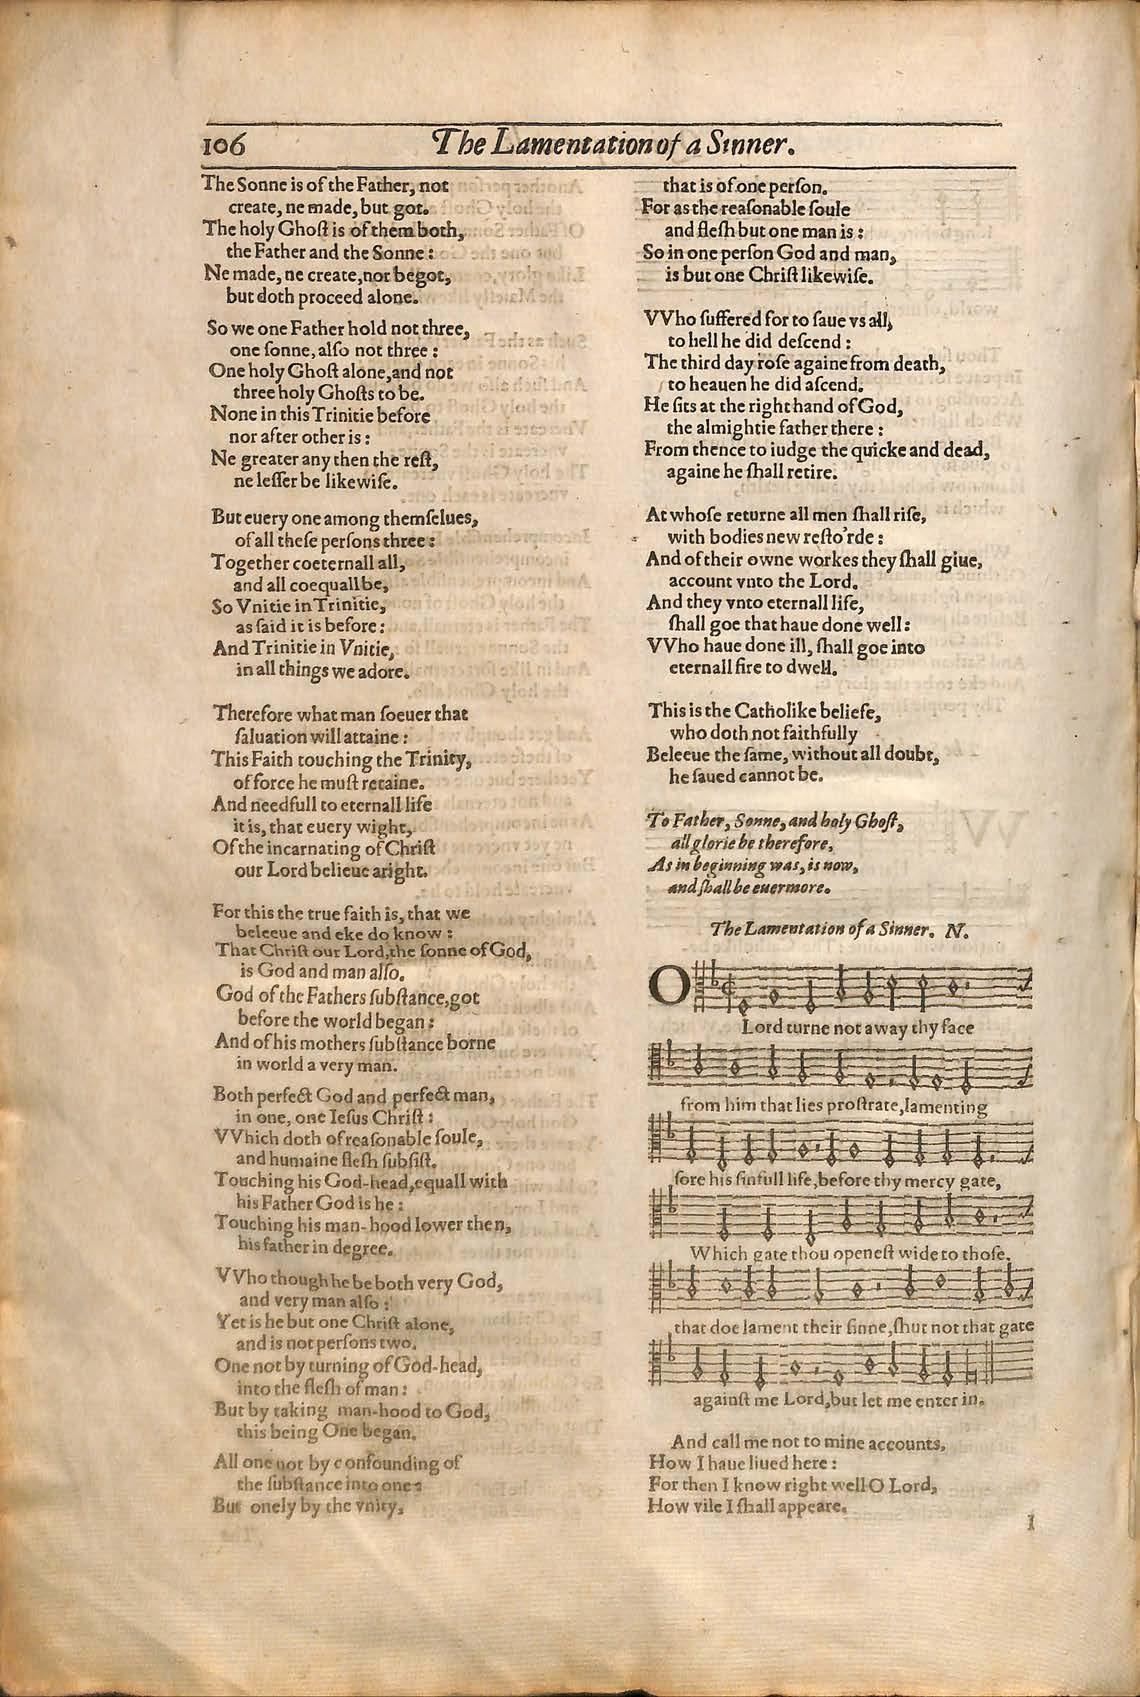 106 The Lamentation of a Sinner.
The Sonne is of the Father, not
create, ne made, but got.
The holy Ghoſt is of them both,
the Father and the Sonne :
Ne made, ne create, nor begot,
but doth proceed alone.
So we one Father hold not three,
one ſonne, alſo not three :
One holy Ghoſt alone, and not
three holy Ghoſts to be.
None in this Trinitie before
nor after other is :
Ne greater any then the reſt,
ne leſſer be likewiſe.
But euery one among themſelues,
of all theſe perſons three :
Together coeternall all,
and all coequall be,
So Vnitie in Trinitie,
as ſaid it is before :
And Trinitie in Vnitie,
in all things we adore.
Therefore what man ſoeuer that
ſaluation will attaine :
This Faith touching the Trinity,
of force he muſt retaine.
And needfull to eternall life
it is, that euery wight,
Of the incarnating of Chriſt
our Lord belieue aright.
For this the true faith is, that we
beleeue and eke do know :
That Chriſt our Lord, the ſonne of God,
is God and man alſo.
God of the Fathers ſubſtance, got
before the world began :
And of his mothers ſubſtance borne
in world a very man.
Both perfect God and perfect man,
in one, one Ieſus Chriſt :
VVhich doth of reaſonable ſoule,
and humaine fleſh ſubſiſt.
Touching his God-head, equall with
his Father God is he :
Touching his man-hood lower then,
his father in degree.
VVho though he be both very God,
and very man alſo :
Yet is he but one Chriſt alone,
and is not perſons two.
One not by turning of God-head,
into the fleſh of man :
But by taking man-hood to God,
this being One began.
All one not by confounding of
the ſubſtance into one :
But onely by the vnity,
that is of one perſon.
For as the reaſonable ſoule
and fleſh but one man is :
So in one perſon God and man,
is but one Chriſt likewiſe.
VVho ſuffered for to ſaue vs all,
to hell he did deſcend :
The third day roſe againe from death,
to heauen he did aſcend.
He ſits at the right hand of God,
the almightie father there :
From thence to iudge the quicke and dead,
againe he ſhall retire.
At whoſe returne all men ſhall riſe,
with bodies new reſto'rde :
And of their owne workes they ſhall giue,
account vnto the Lord.
And they vnto eternall life,
ſhall goe that haue done well :
VVho haue done ill, ſhall goe into
eternall fire to dwell.
This is the Catholike beliefe,
who doth not faithfully
Beleeue the ſame, without all doubt,
he ſaued cannot be.
To Father, Sonne, and holy Ghoſt,
all glorie be therefore,
As in beginning was, is now,
and ſhall be euermore.
The Lamentation of a Sinner. N.
O
Lord turne not away thy face
from him that lies proſtrate, lamenting
ſore his ſinfull life, before thy mercy gate,
Which gate thou openeſt wide to thoſe,
that doe lament their ſinne, ſhut not that gate
againſt me Lord, but let me enter in.
And call me not to mine accounts,
How I haue liued here :
For then I know right well O Lord,
How vile I ſhall appeare.
I